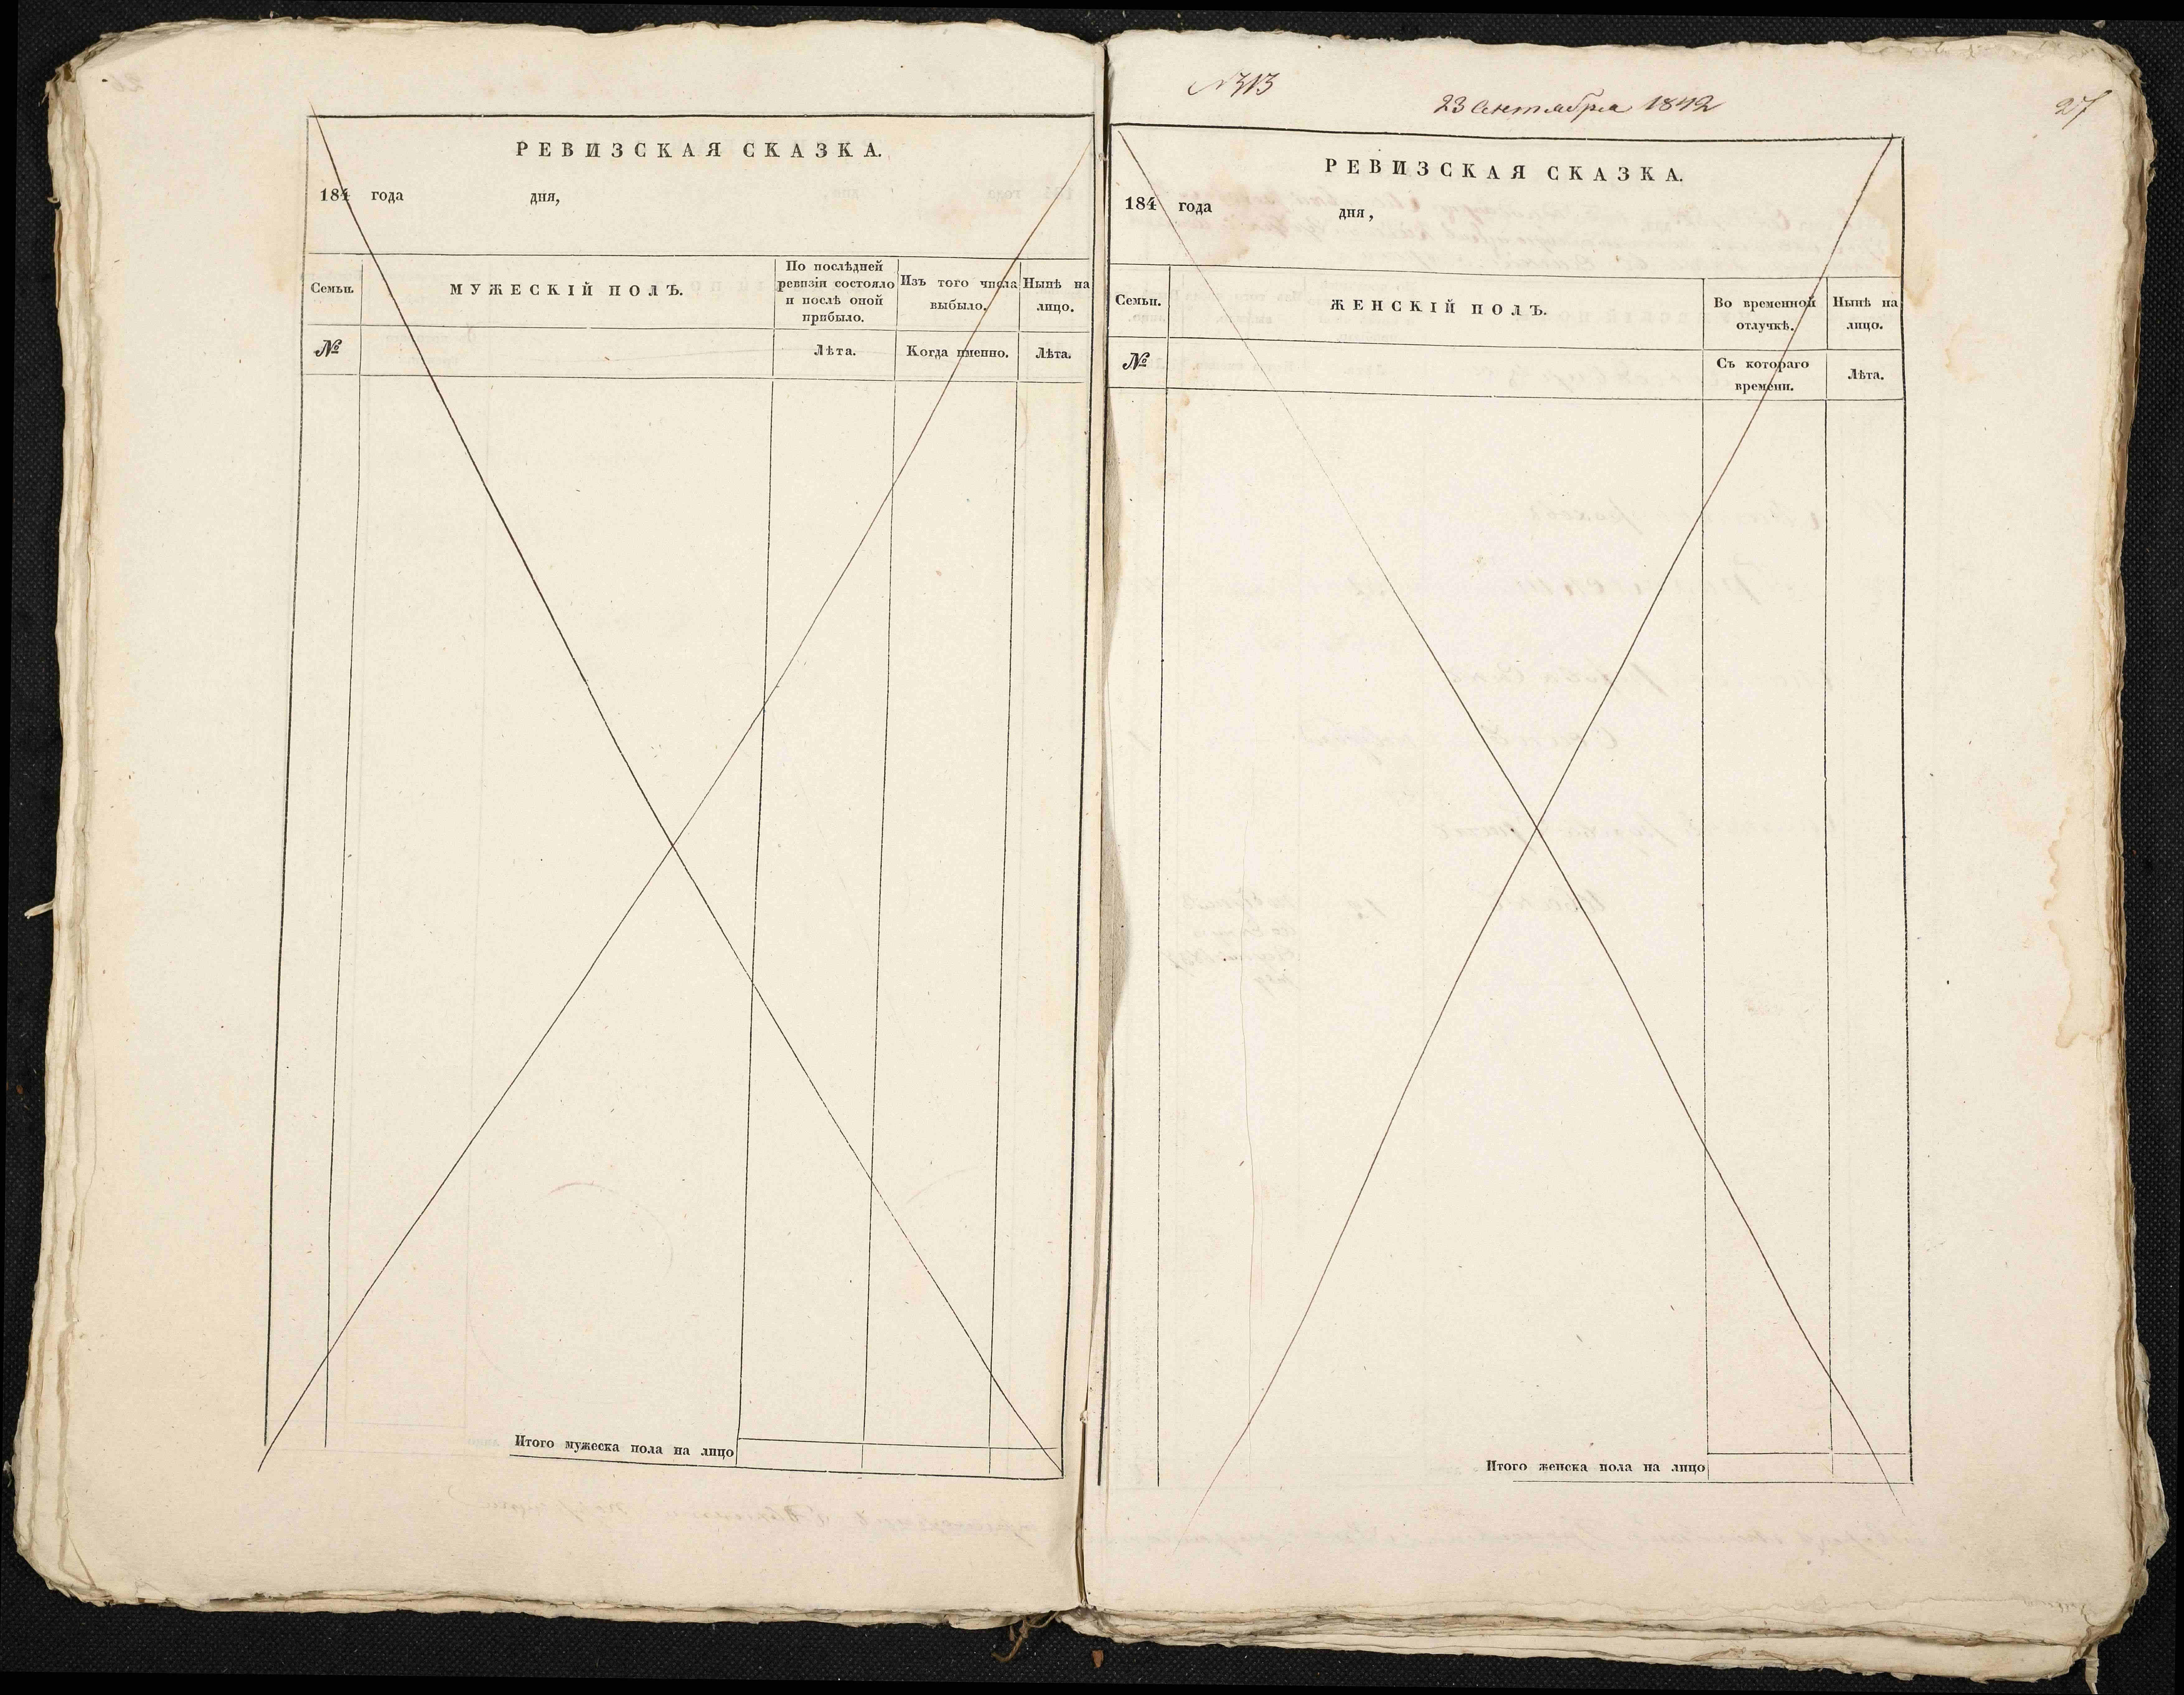 РЕВИЗСКАЯ СКАЗКА.
184 года дня,
Семьи.
МУЖЕСКІЙ ПОЛЪ.
По послѣдней ревизіи состояло и послѣ оной прибыло.
Изъ того числа выбыло.
Нынѣ на лицо.
№
Лѣта.
Когда именно.
Лѣта.
Итого мужеска пола на лицо
N313
23 Сентября 1842
27
РЕВИЗСКАЯ СКАЗКА.
184 года дня,
Семьи.
ЖЕНСКІЙ ПОЛЪ.
Во временной отлучкѣ.
Нынѣ на лицо.
№
Съ котораго времени.
Лѣта.
Итого женска пола на лицо